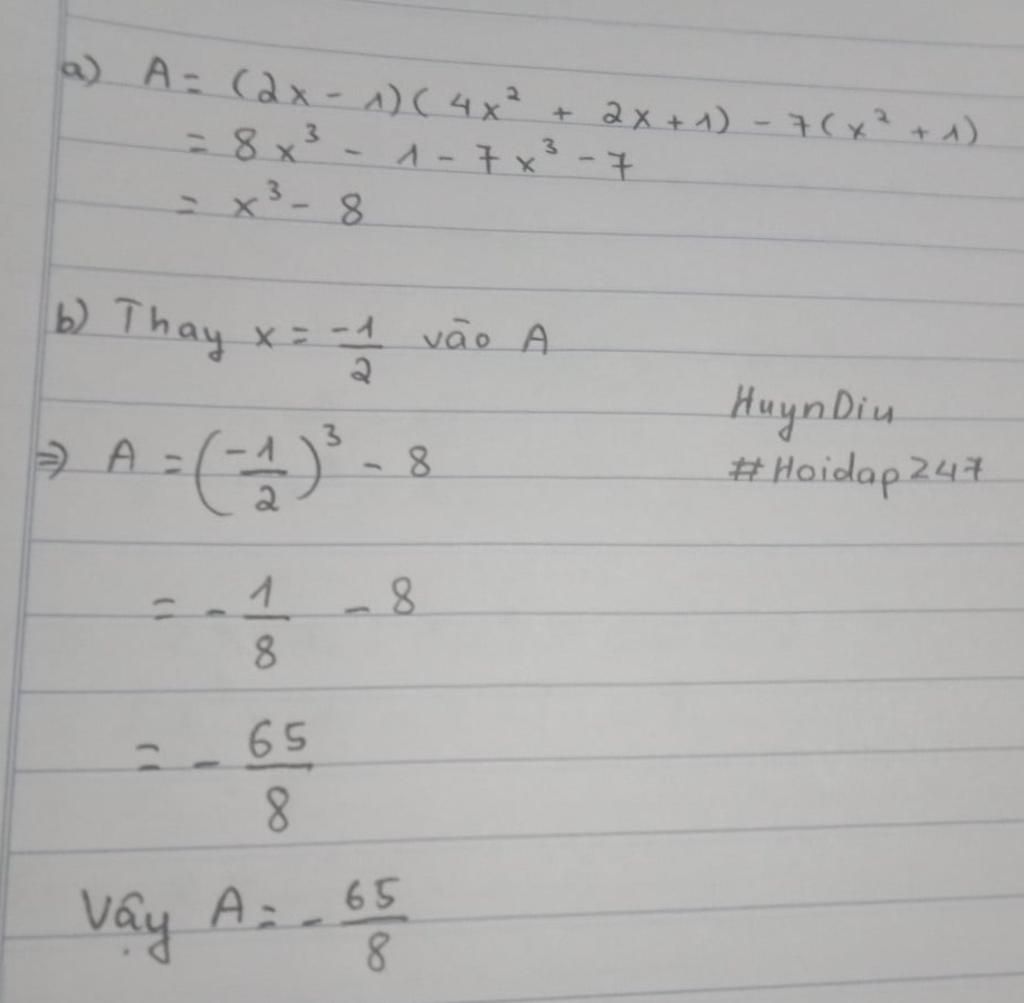 a) A = (2x - 1)(4x² + 2x + 1) - 7(x² + 1)
= 8x³ - 1 - 7x³ - 7
= x³ - 8
b) Thay x = -1/2 vào A
⇒ A = (-1/2)³ - 8
HuynDiu
#Hoidap247
= - 1/8 - 8
= - 65/8
Vậy A = - 65/8